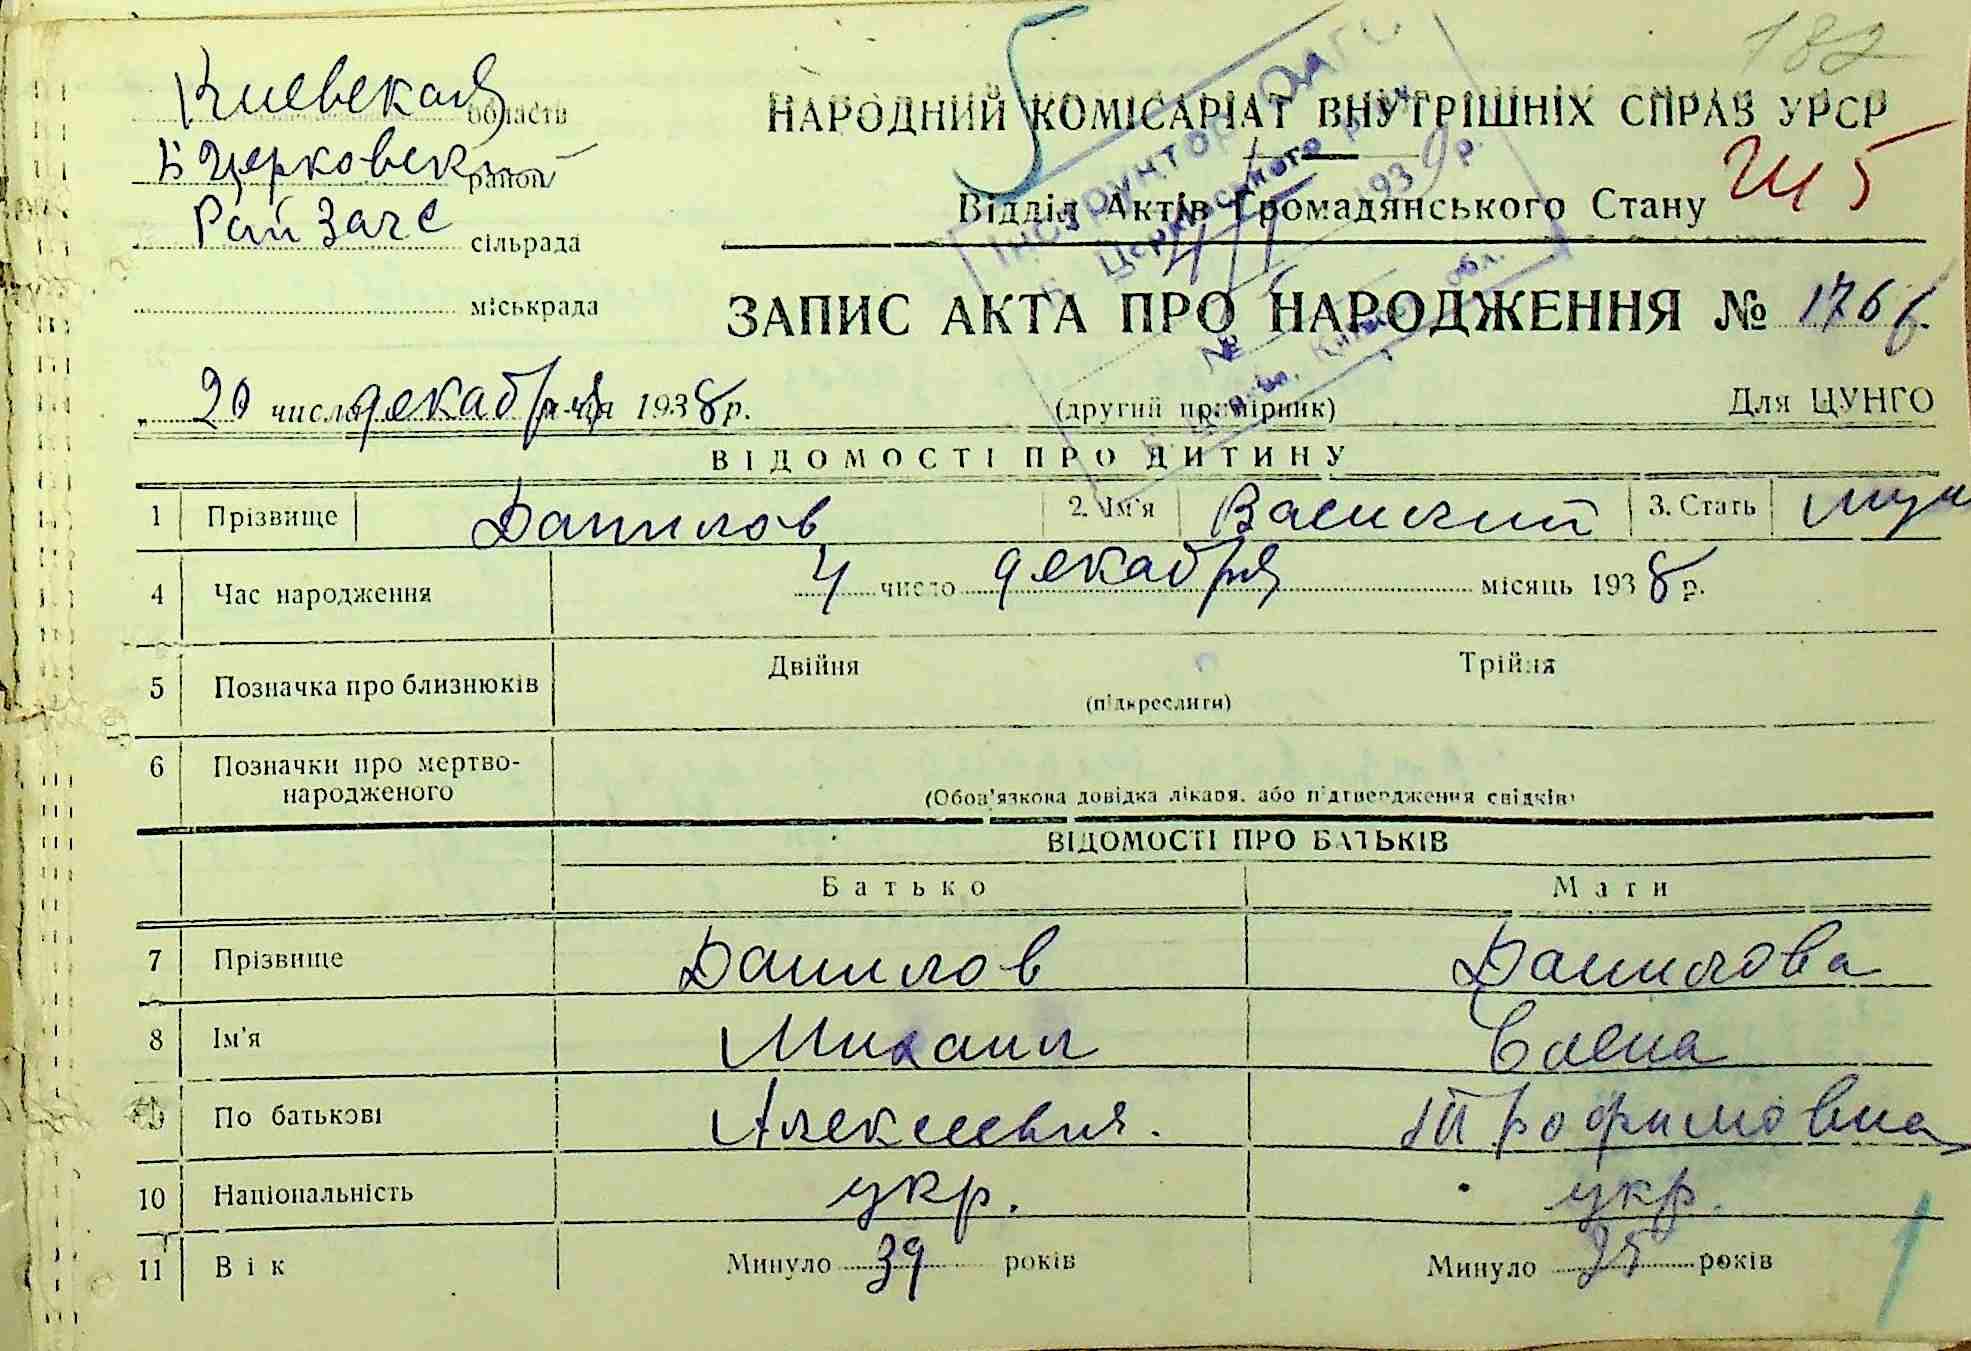 182
Киевская області
НАРОДНИЙ КОМІСАРІАТ ВНУТРІШНІХ СПРАВ УРСР
Б Церковский район
Відділ Актів Громадянського Стану
Рай Загс сільрада
міськрада
ЗАПИС АКТА ПРО НАРОДЖЕННЯ № 1766
„ 20 числа декабря м-ця 1938 р.
(другий примірник)
Для ЦУНГО
ВІДОМОСТІ ПРО ДИТИНУ
1 Прізвище Данилов 2. Ім'я Василий 3. Стать муж
4 Час народження 4 число декабря місяць 1938 р.
5 Позначка про близнюків Двійня Трійня
(підкреслити)
6 Позначки про мертво-
народженого
(Обов'язкова довідка лікаря, або підтвердження свідків)
ВІДОМОСТІ ПРО БАТЬКІВ
Батько Мати
7 Прізвище Данилов Данилова
8 Ім'я Михаил Елена
9 По батькові Алексеевич. Трофимовна
10 Національність укр. укр.
11 Вік Минуло 39 років Минуло років